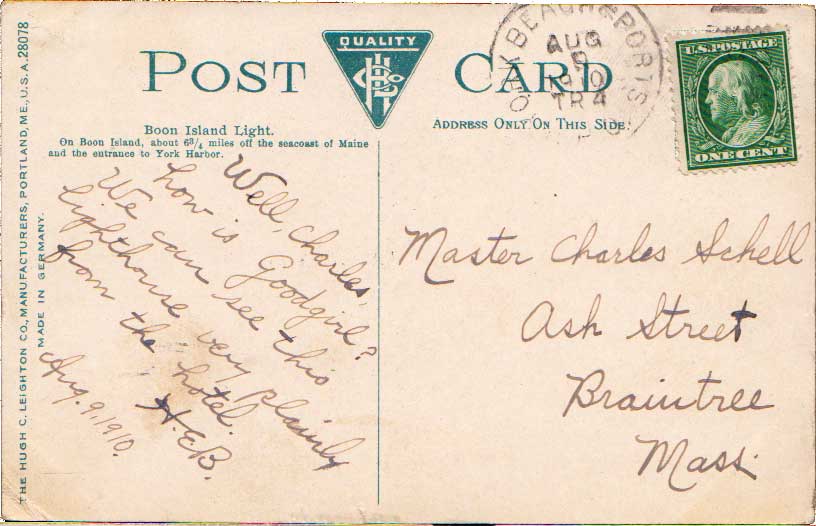 POST CARD
QUALITY
HLCo
Boon Island Light.
On Boon Island, about 6 3/4 miles off the seacoast of Maine
and the entrance to York Harbor.
ADDRESS ONLY ON THIS SIDE.
YORK BEACH & PORTS
AUG
9
1910
TR 4
U.S. POSTAGE
ONE CENT
THE HUGH C. LEIGHTON CO., MANUFACTURERS, PORTLAND, ME., U.S.A. 28078
MADE IN GERMANY.
Well, Charles,
how is Goodgirl?
We can see this
lighthouse very plainly
from the hotel.
H.E.B.
Aug. 9, 1910.
Master Charles Schell
Ash Street
Braintree
Mass.